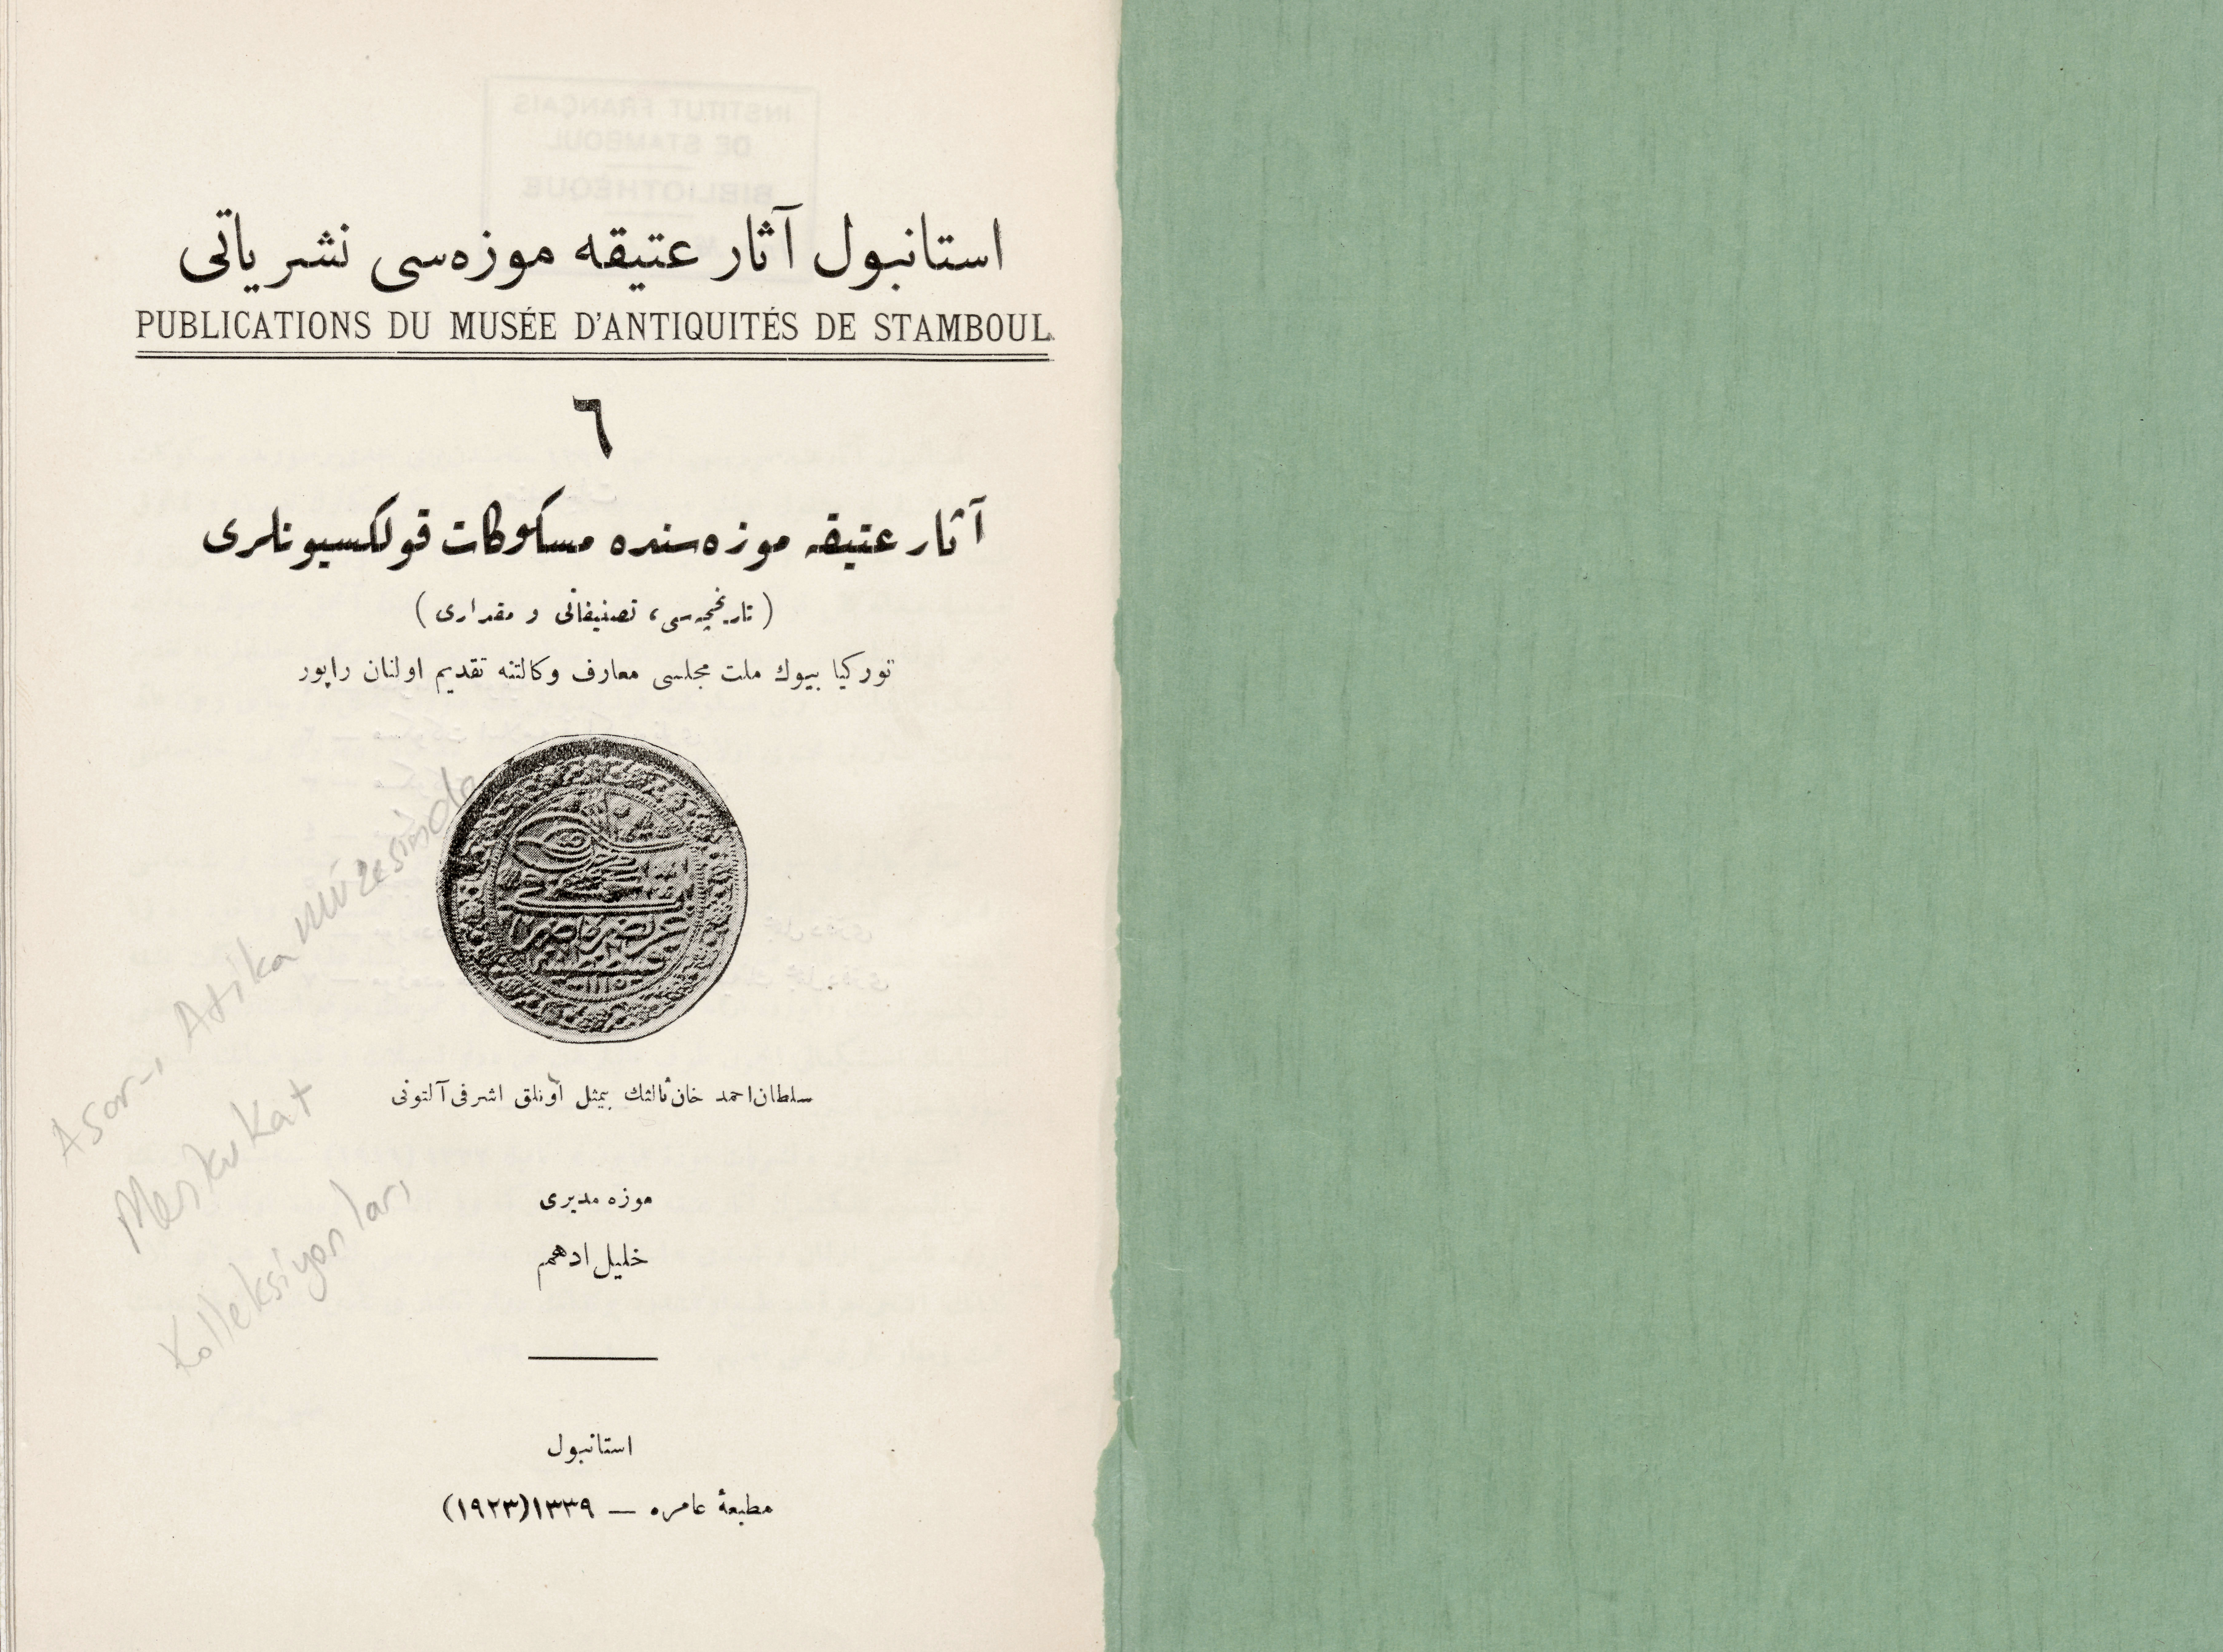 استانبول آثار عتيقه موزه‌سی نشریاتی
PUBLICATIONS DU MUSÉE D'ANTIQUITÉS DE STAMBOUL
٦
آثار عتيقه موزه‌سنده مسکوکات قولکسیونلری
(تاریخچه‌سی، تصنیفاتی و مقداری)
تورکیا بیوك ملت مجلسی معارف وکالتنه تقدیم اولنان راپور
سلطان احمد خان ثالثك بیمثل اونلق اشرفی آلتونی
موزه مدیری
خلیل ادهم
استانبول
مطبعهٔ عامره — ١٣٣٩(١٩٢٣)
Asar-ı Atika müzesinde
Meskukat
Kolleksiyonları
INSTITUT FRANÇAIS
DE STAMBOUL
BIBLIOTHÈQUE